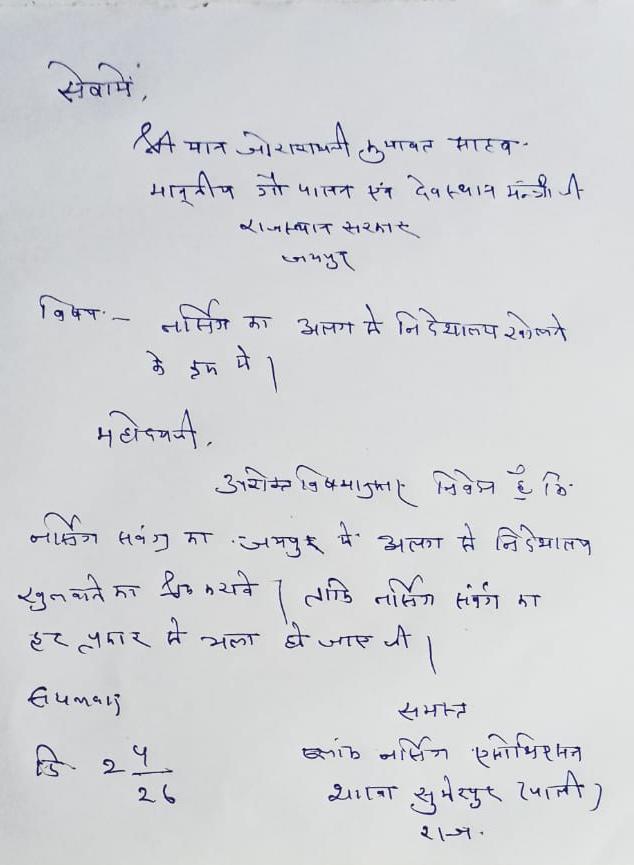 सेवामें,
श्री मान जोरारामजी कुमावत साहब
माननीय गौ पालन एवं देवस्थान मन्त्री जी
राजस्थान सरकार
जयपुर
विषय:- नर्सिग का अलग से निदेशालय खोलने
के हक मे |
महोदयजी,
उपरोक्त विषयानुसार निवेदन है कि
नर्सिग सवंग का जयपुर मे अलग से निदेशालय
खुलवाने का करावे | ताकि नर्सिग संवंग का
हर प्रकार से भला हो जाए जी |
समस्त
दि. 2 4/26 ब्लॉक नर्सिग एसोसिएसन
शाखा सुमेरपुर (पाली)
राज.